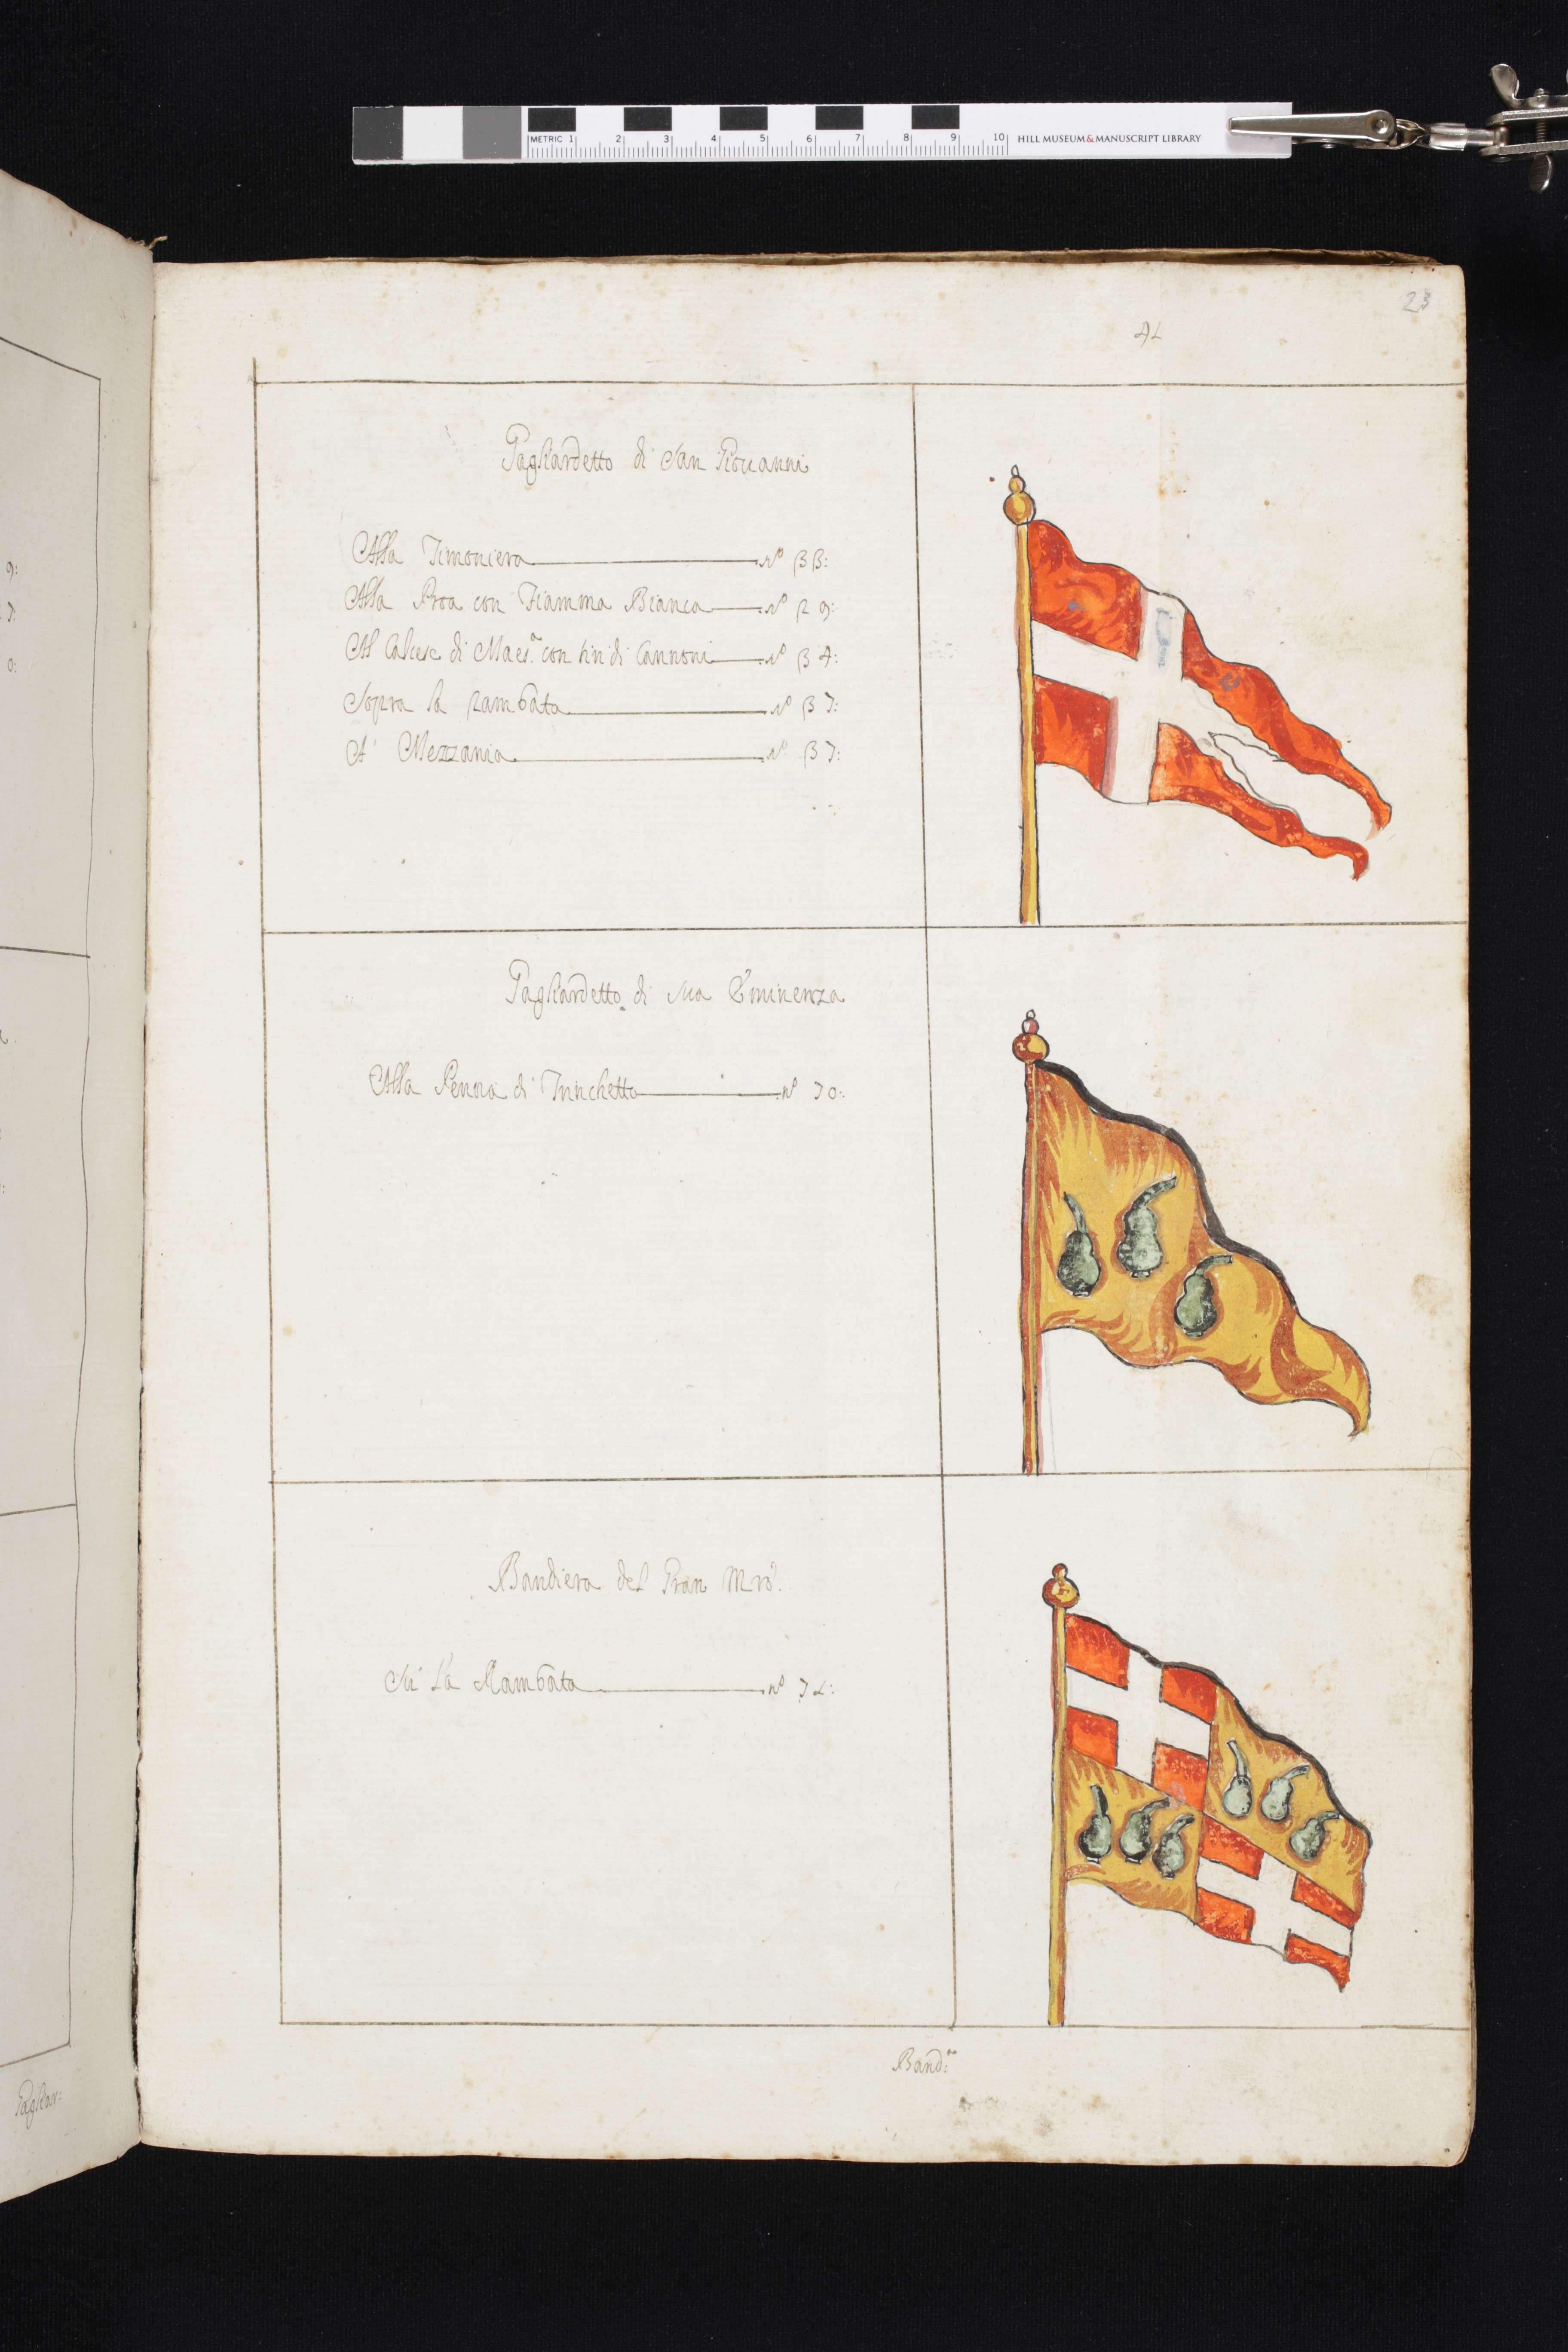 METRIC 1 2 3 4 5 6 7 8 9 10 HILL MUSEUM & MANUSCRIPT LIBRARY
23
Pagliardetto di San Giouanni
Alla Timoniera n° 33:
Alla Proa con Fiamma Bianca n° 29:
Al Calcese di Maes.a con tiri di Cannoni n° 34:
Sopra la Rambata n° 37:
A Mezzania n° 37:
Pagliardetto di Sua Eminenza
Alla Penna di Trinchetto n° 70:
Bandiera del Gran Mro.
Su La Rambata n° 71:
Band.a
9:
7:
0:
Pagliar: